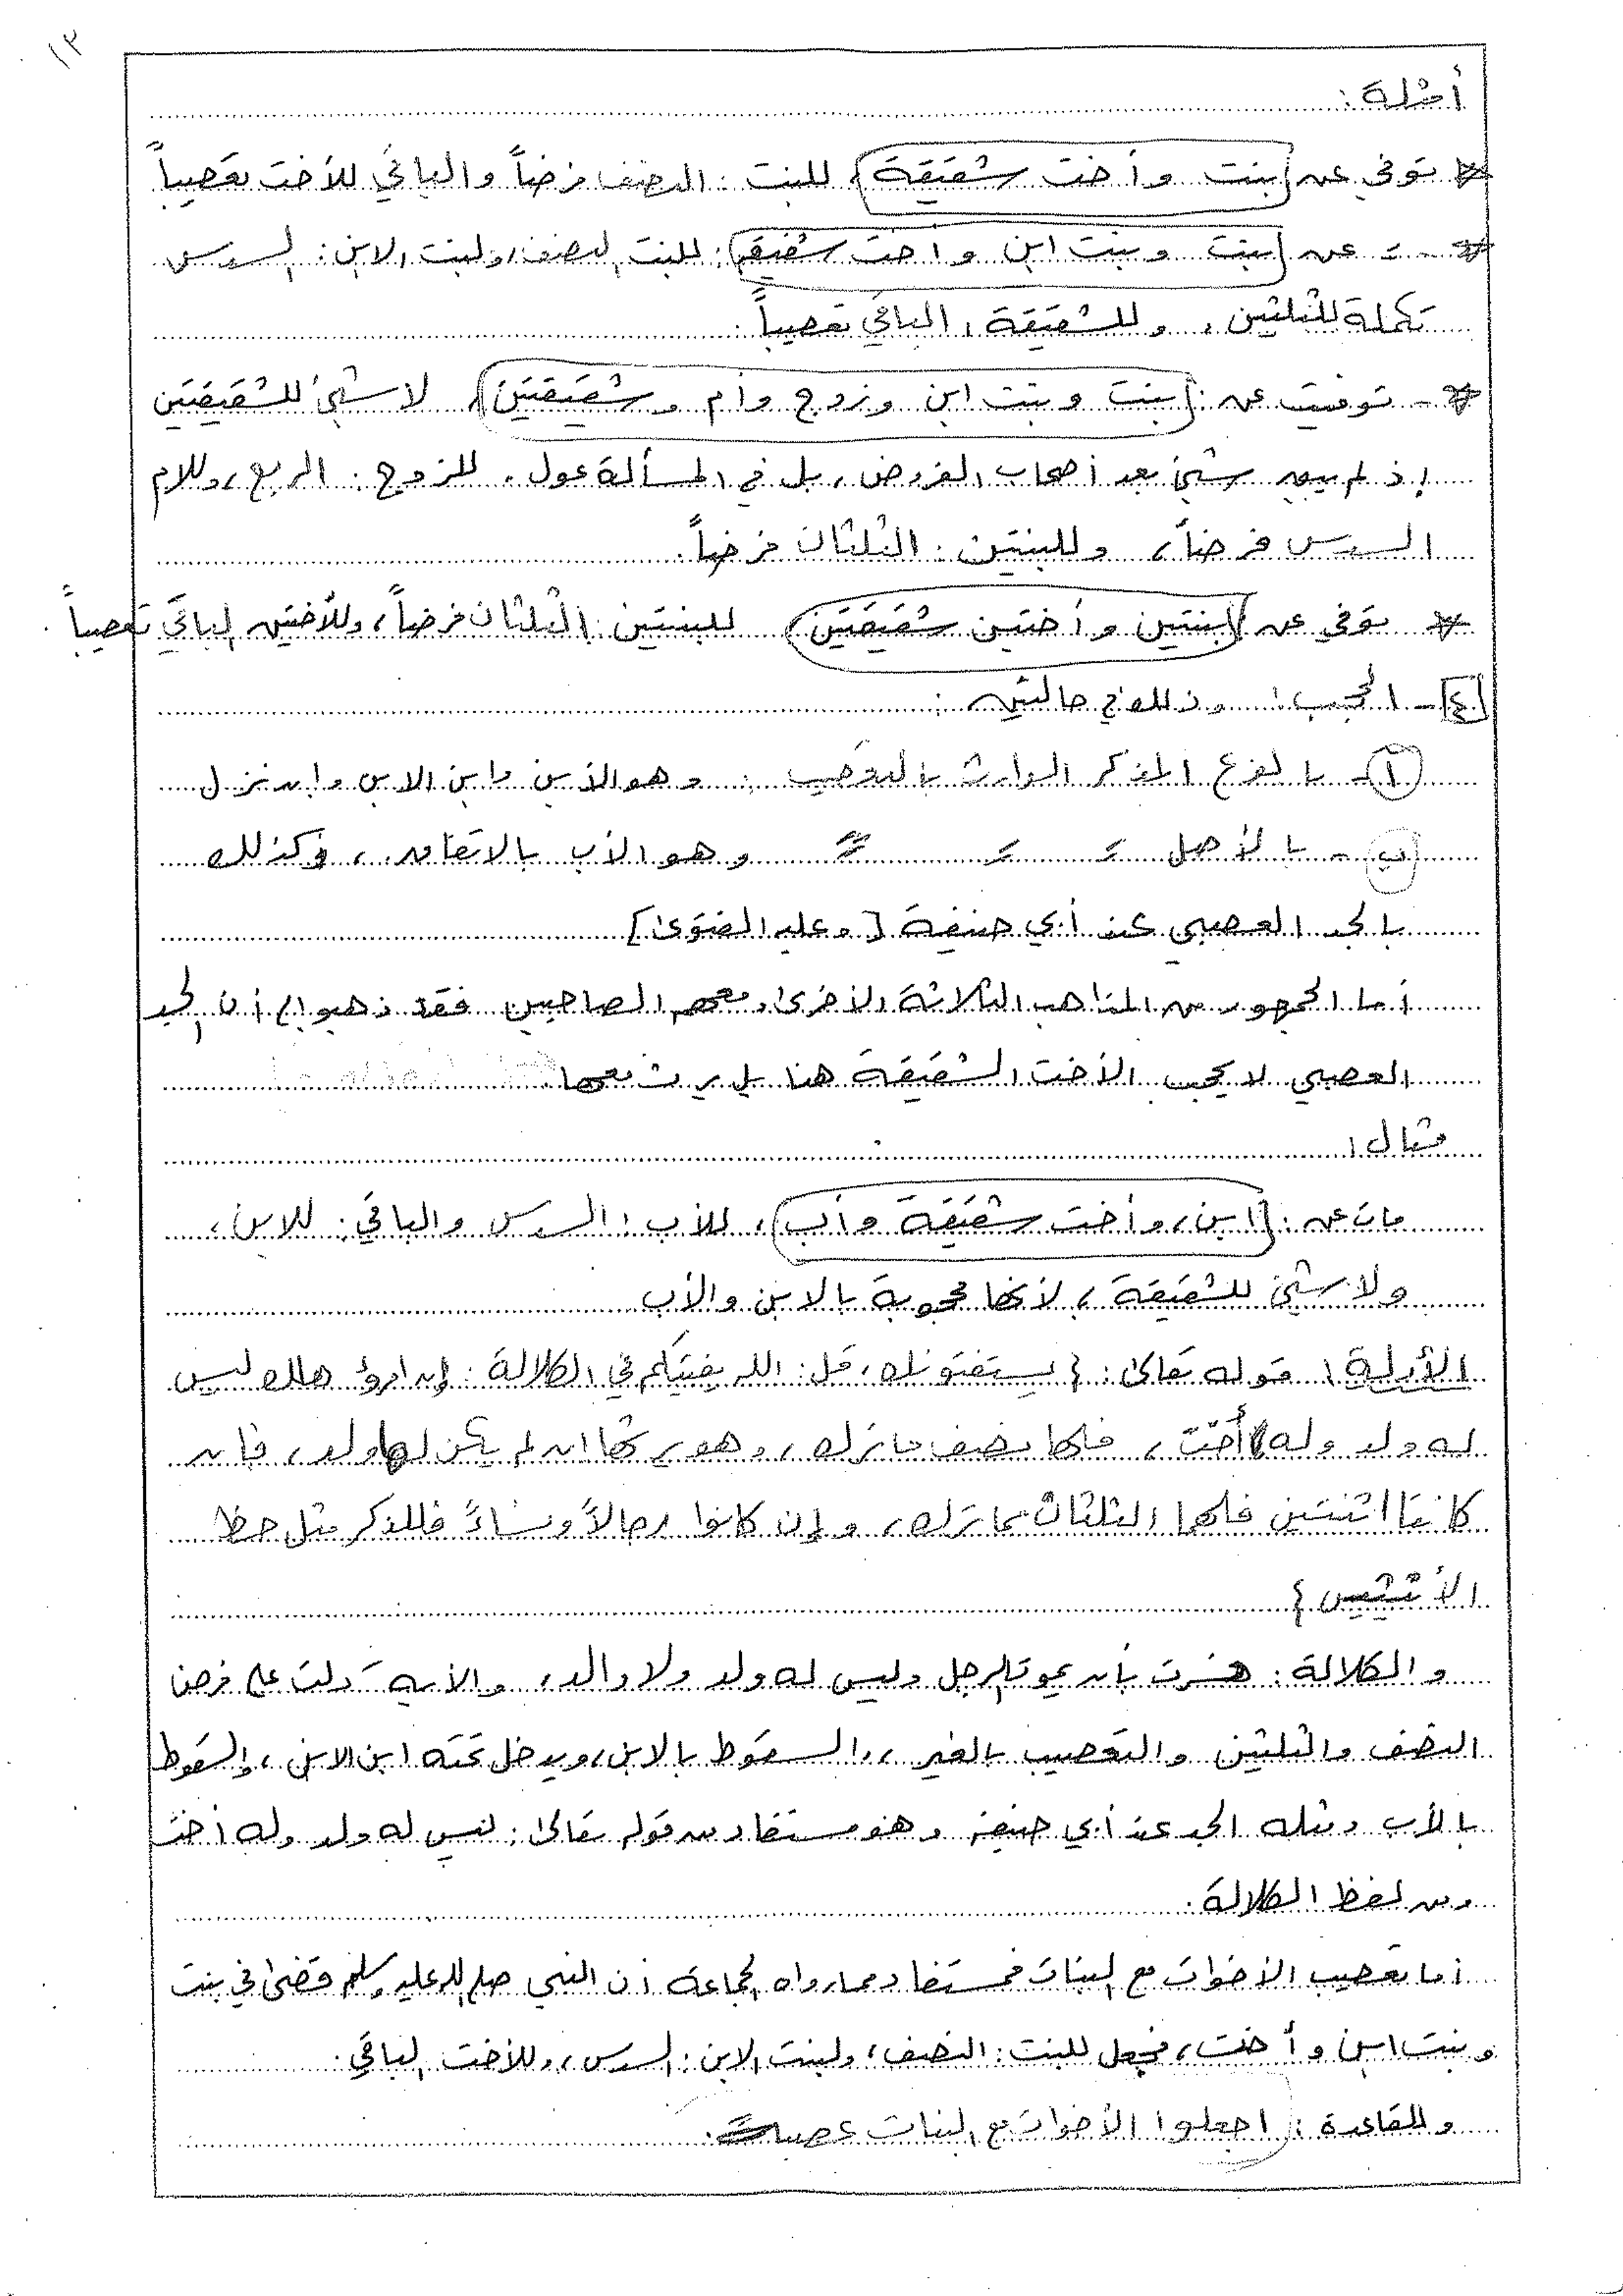 ١٣
أمثلة :
* توفي عن [بنت وأخت شقيقة] للبنت : النصف فرضاً والباقي للأخت تعصيباً
* - = عن [بنت وبنت ابن وأخت شقيقة] : للبنت النصف، ولبنت الابن : السدس
تكملة للثلثين ، وللشقيقة ، الباقي تعصيباً .
* - توفيت عن : [بنت وبنت ابن وزوج وأم وشقيقتين] ، لا شيئ للشقيقتين
إذ لم يبق شيئ بعد أصحاب الفروض ، بل في المسألة عول . للزوج : الربع ، وللأم
السدس فرضاً ، وللبنتين : الثلثان فرضاً .
* توفي عن [بنتين وأختين شقيقتين] للبنتين : الثلثان فرضاً ، وللأختين الباقي تعصيباً .
[٤] - الحجب : وذلك في حالتين :
(أ) - بالفرع المذكر الوارث بالتعصيب : وهو الابن وابن الابن وإن نزل
(ب) - بالأصل = = = وهو الأب بالاتفاق ، وكذلك
بالجد العصبي عند أبي حنيفة [وعليه الفتوى]
أما الجمهور من المذاهب الثلاثة الأخرى ومعهم الصاحبين فقد ذهبوا / أن الجد
العصبي لا يحجب الأخت الشقيقة هنا بل يرث معها .
مثال :
مات عن : [ابن ، وأخت شقيقة وأب] ، للأب : السدس والباقي : للابن ،
ولا شيئ للشقيقة ، لأنها محجوبة بالابن والأب
الأدلة : قوله تعالى : { يستفتونك ، قل : الله يفتيكم في الكلالة : إن امرؤ هلك ليس
له ولد وله أخت ، فلها نصف ما ترك ، وهو يرثها إن لم يكن لها ولد ، فإن
كانتا اثنتين فلهما الثلثان مما ترك ، وإن كانوا رجالاً ونساءً فللذكر مثل حظ
الأنثيين }
والكلالة : فسرت بأن يموت الرجل وليس له ولد ولا والد ، والآية دلت على فرض
النصف والثلثين والتعصيب بالغير ، والسقوط بالابن ، ويدخل تحته ابن الابن ، والسقوط
بالأب ومثله الجد عند أبي حنيفة وهو مستفاد من قوله تعالى : ليس له ولد وله أخت
ومن لفظ الكلالة .
أما تعصيب الأخوات مع البنات فمستفاد مما رواه الجماعة أن النبي صلى الله عليه وسلم قضى في بنت
وبنت ابن وأخت ، فجعل للبنت : النصف ، ولبنت الابن : السدس ، وللأخت الباقي .
والقاعدة : اجعلوا الأخوات مع البنات عصبة .